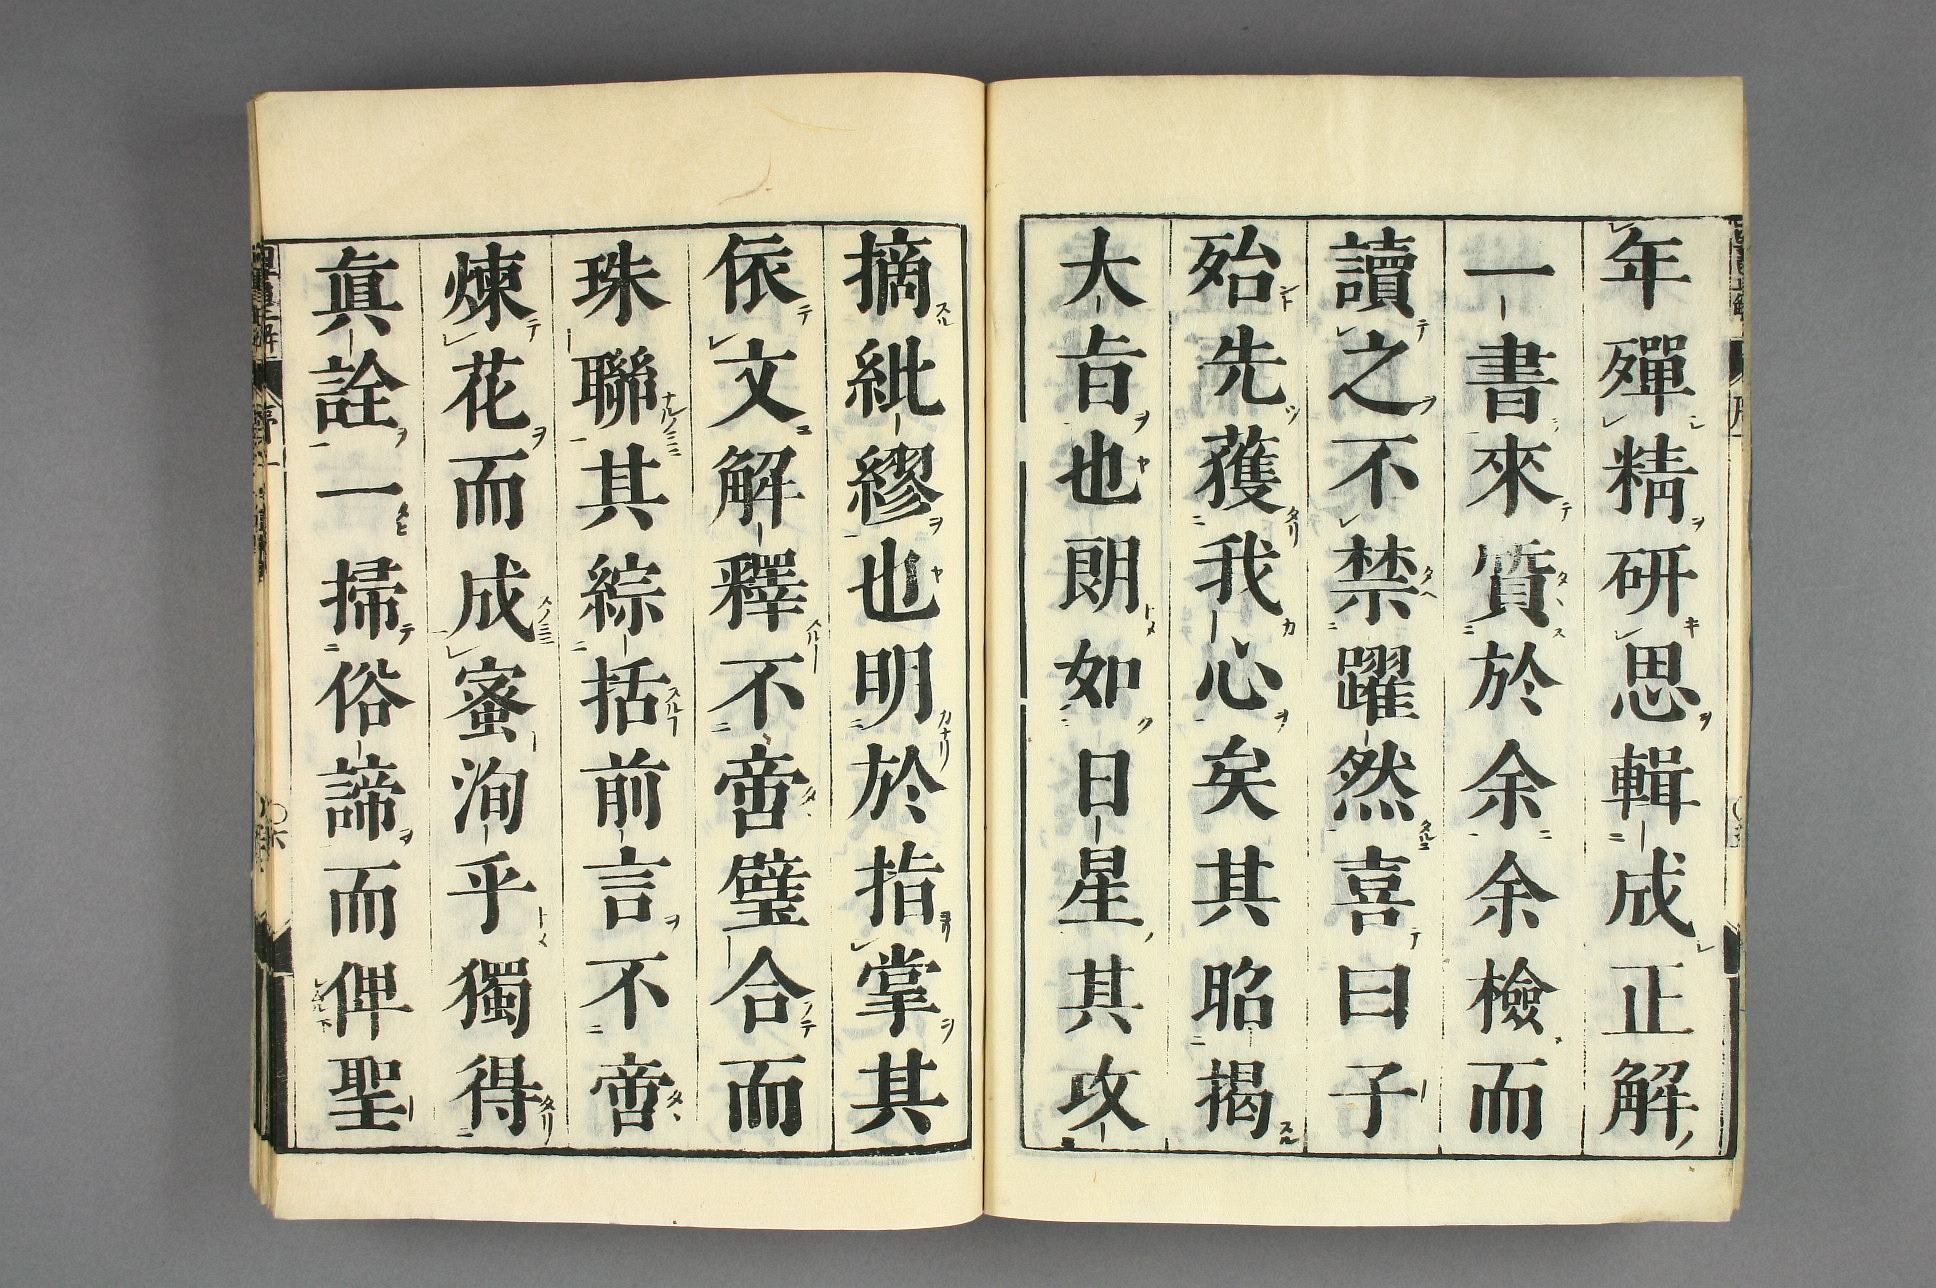 年殫精研思輯成正解
一書來質於余余檢而
讀之不禁躍然喜曰子
殆先獲我心矣其昭揭
大旨也朗如日星其攻
摘紕繆也明於指掌其
依文解釋不啻璧合而
珠聯其綜括前言不啻
煉花而成蜜洵乎獨得
真詮一掃俗諦而俾聖